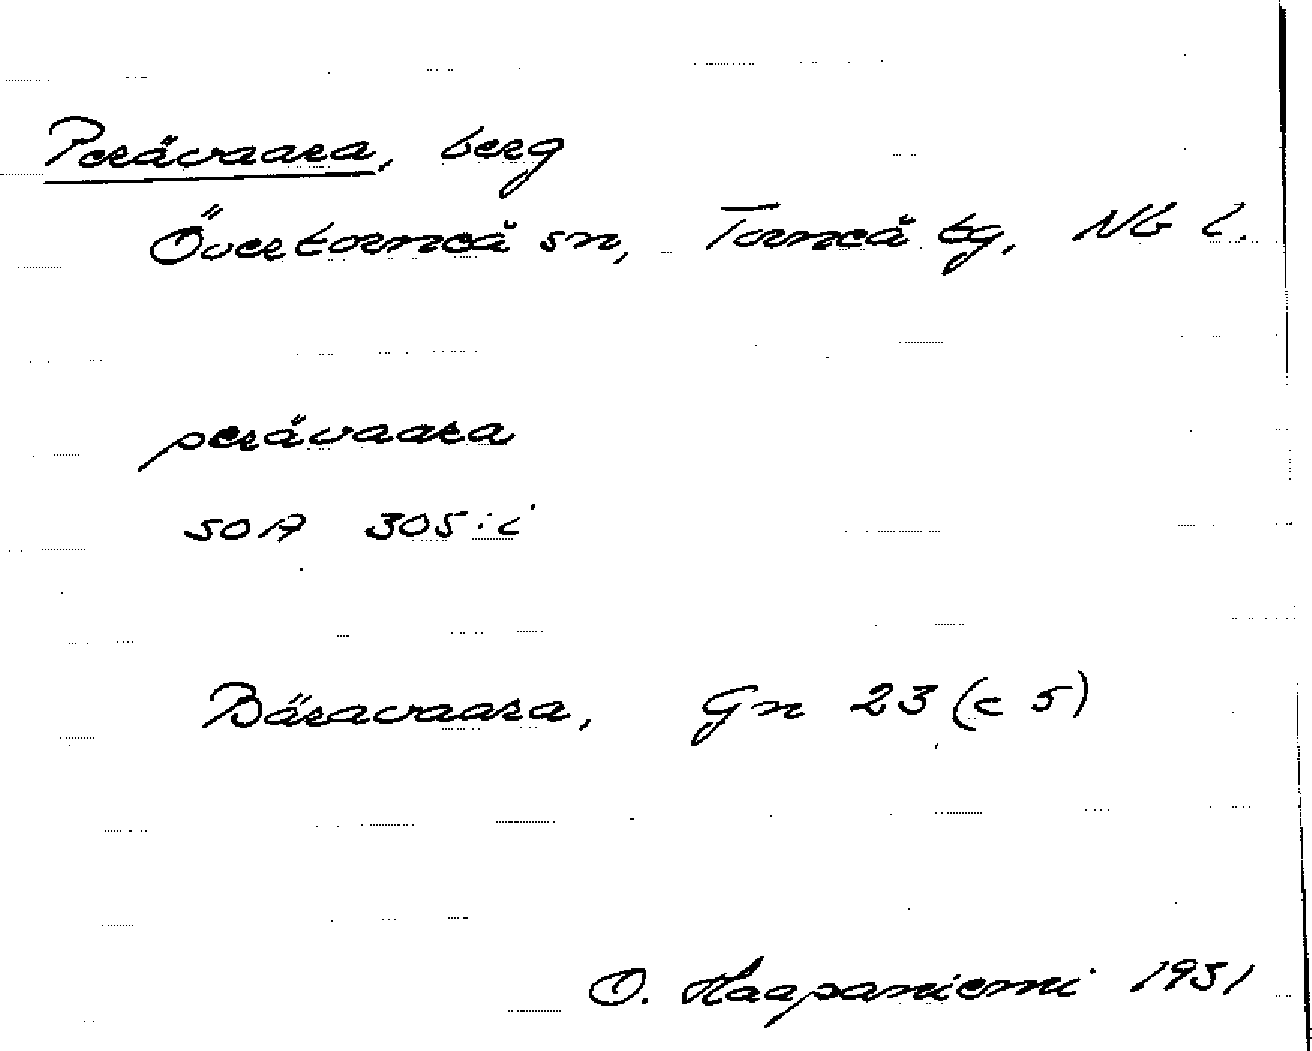 Perävaara, berg
Övertorneå sn, Torneå tg, Nb l.
perävaara
SOA 305:i
Bäravaara, Gn 23 (c 5)
O. Haapaniemi 1931